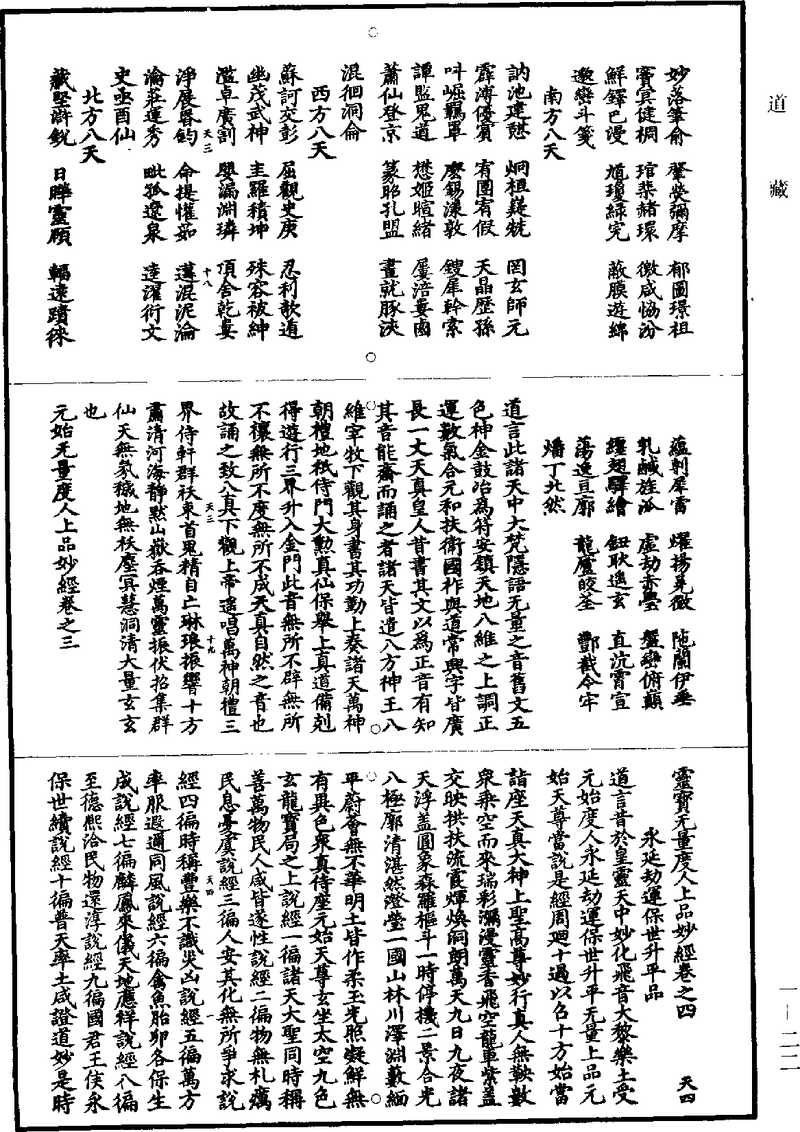 道藏
妙落筆俞 磬熒彌摩 郁圖璟祖
賨冥健棡 琯蘂赭環 徵咸恊汾
鮮鐸巴漫 馗瓊綠完 蔽膜遊綿
邀巒斗箋
南方八天
訥池建諶 炯桓嶷兢 罔玄師元
霹溥優賓 宥團宥假 天晶歷孫
叫崛羈罩 麼錫漾敦 鍐犀幹索
譚監鬼道 懋姬暄緒 屢涪婁鹵
蕭仙登京 篆昭孔盟 畫就豚浹
混徊洞侖
西方八天
蘇訶交彭 屈觀史庚 忍利歌逍
幽茂武神 圭羅積坤 殊容被紳
濫卓廣割 嬰漏淵璘 頂舍乾宴
淨展尋鈞 命提懽茹 溝混泥淪
瀹莊蓮秀 毗孤遼泉 達濯術文
史亟酉仙
北方八天
藏堅滸銳 日曄靈頋 輻遠蹟徠
蘊刺犀雷 燿揚晃微 陁闌伊垂
乳鹹旌泒 虛劫奈瑩 盤巒俯顛
纏翅驛繪 鈕耿遙玄 直沆霄宣
蕩逸亘廓 龍廬皎荃 酆截令牢
燔丁北然
道言此諸天中大梵隱語无量之音舊文五
色神金鼓冶為符安鎮天地八維之上調正
運數氣合元和扶衛國祚與道常興字皆廣
長一丈天真皇人昔書其文以為正音有知
其音能齋而誦之者諸天皆遣八方神王八
維宰牧下觀其身書其功勤上奏諸天萬神
朝禮地祇侍門大勲真仙保舉上真道備剋
得遊行三界升入金門此音無所不辟無所
不禳無所不度無所不成天真自然之音也
故誦之致八真下觀上帝遙唱萬神朝禮三
天三 十八
界侍軒群祅束首鬼精自亡琳琅振響十方
肅清河海靜默山嶽吞煙萬靈振伏招集群
仙天無氛穢地無祅塵冥慧洞清大量玄玄
也
元始无量度人上品妙經卷之三
天三 十九
靈寶无量度人上品妙經卷之四 天四
永延劫運保世升平品
道言昔於皇靈天中妙化飛音大黎樂土受
元始度人永延劫運保世升平无量上品元
始天尊當說是經周迴十過以召十方始當
詣座天真大神上聖高尊妙行真人無鞅數
眾乘空而來瑞彩瀰漫靈香飛空龍軍紫蓋
交映拱扶流霞煇煥洞朗萬天九日九夜諸
天浮蓋圓象森羅樞斗一時停機二景合光
八極廓清湛然澄瑩一國山林川澤淵藪緬
平蔚薈無不華明土皆作柔玉光照凝鮮無
有異色眾真侍座元始天尊玄坐太空九色
玄龍寶局之上說經一徧諸天大聖同時稱
善萬物民人咸皆遂性說經二徧物無札癘
民息憂虞說經三徧人安其化無所爭求說
天四
經四徧時稱豐樂不識災凶說經五徧萬方
率服遐邇同風說經六徧禽魚胎卵各保生
成說經七徧麟鳳來儀天地應祥說經八徧
至德熙洽民物還淳說經九徧國君王侯永
保世續說經十徧普天率土咸證道妙是時
一—二二